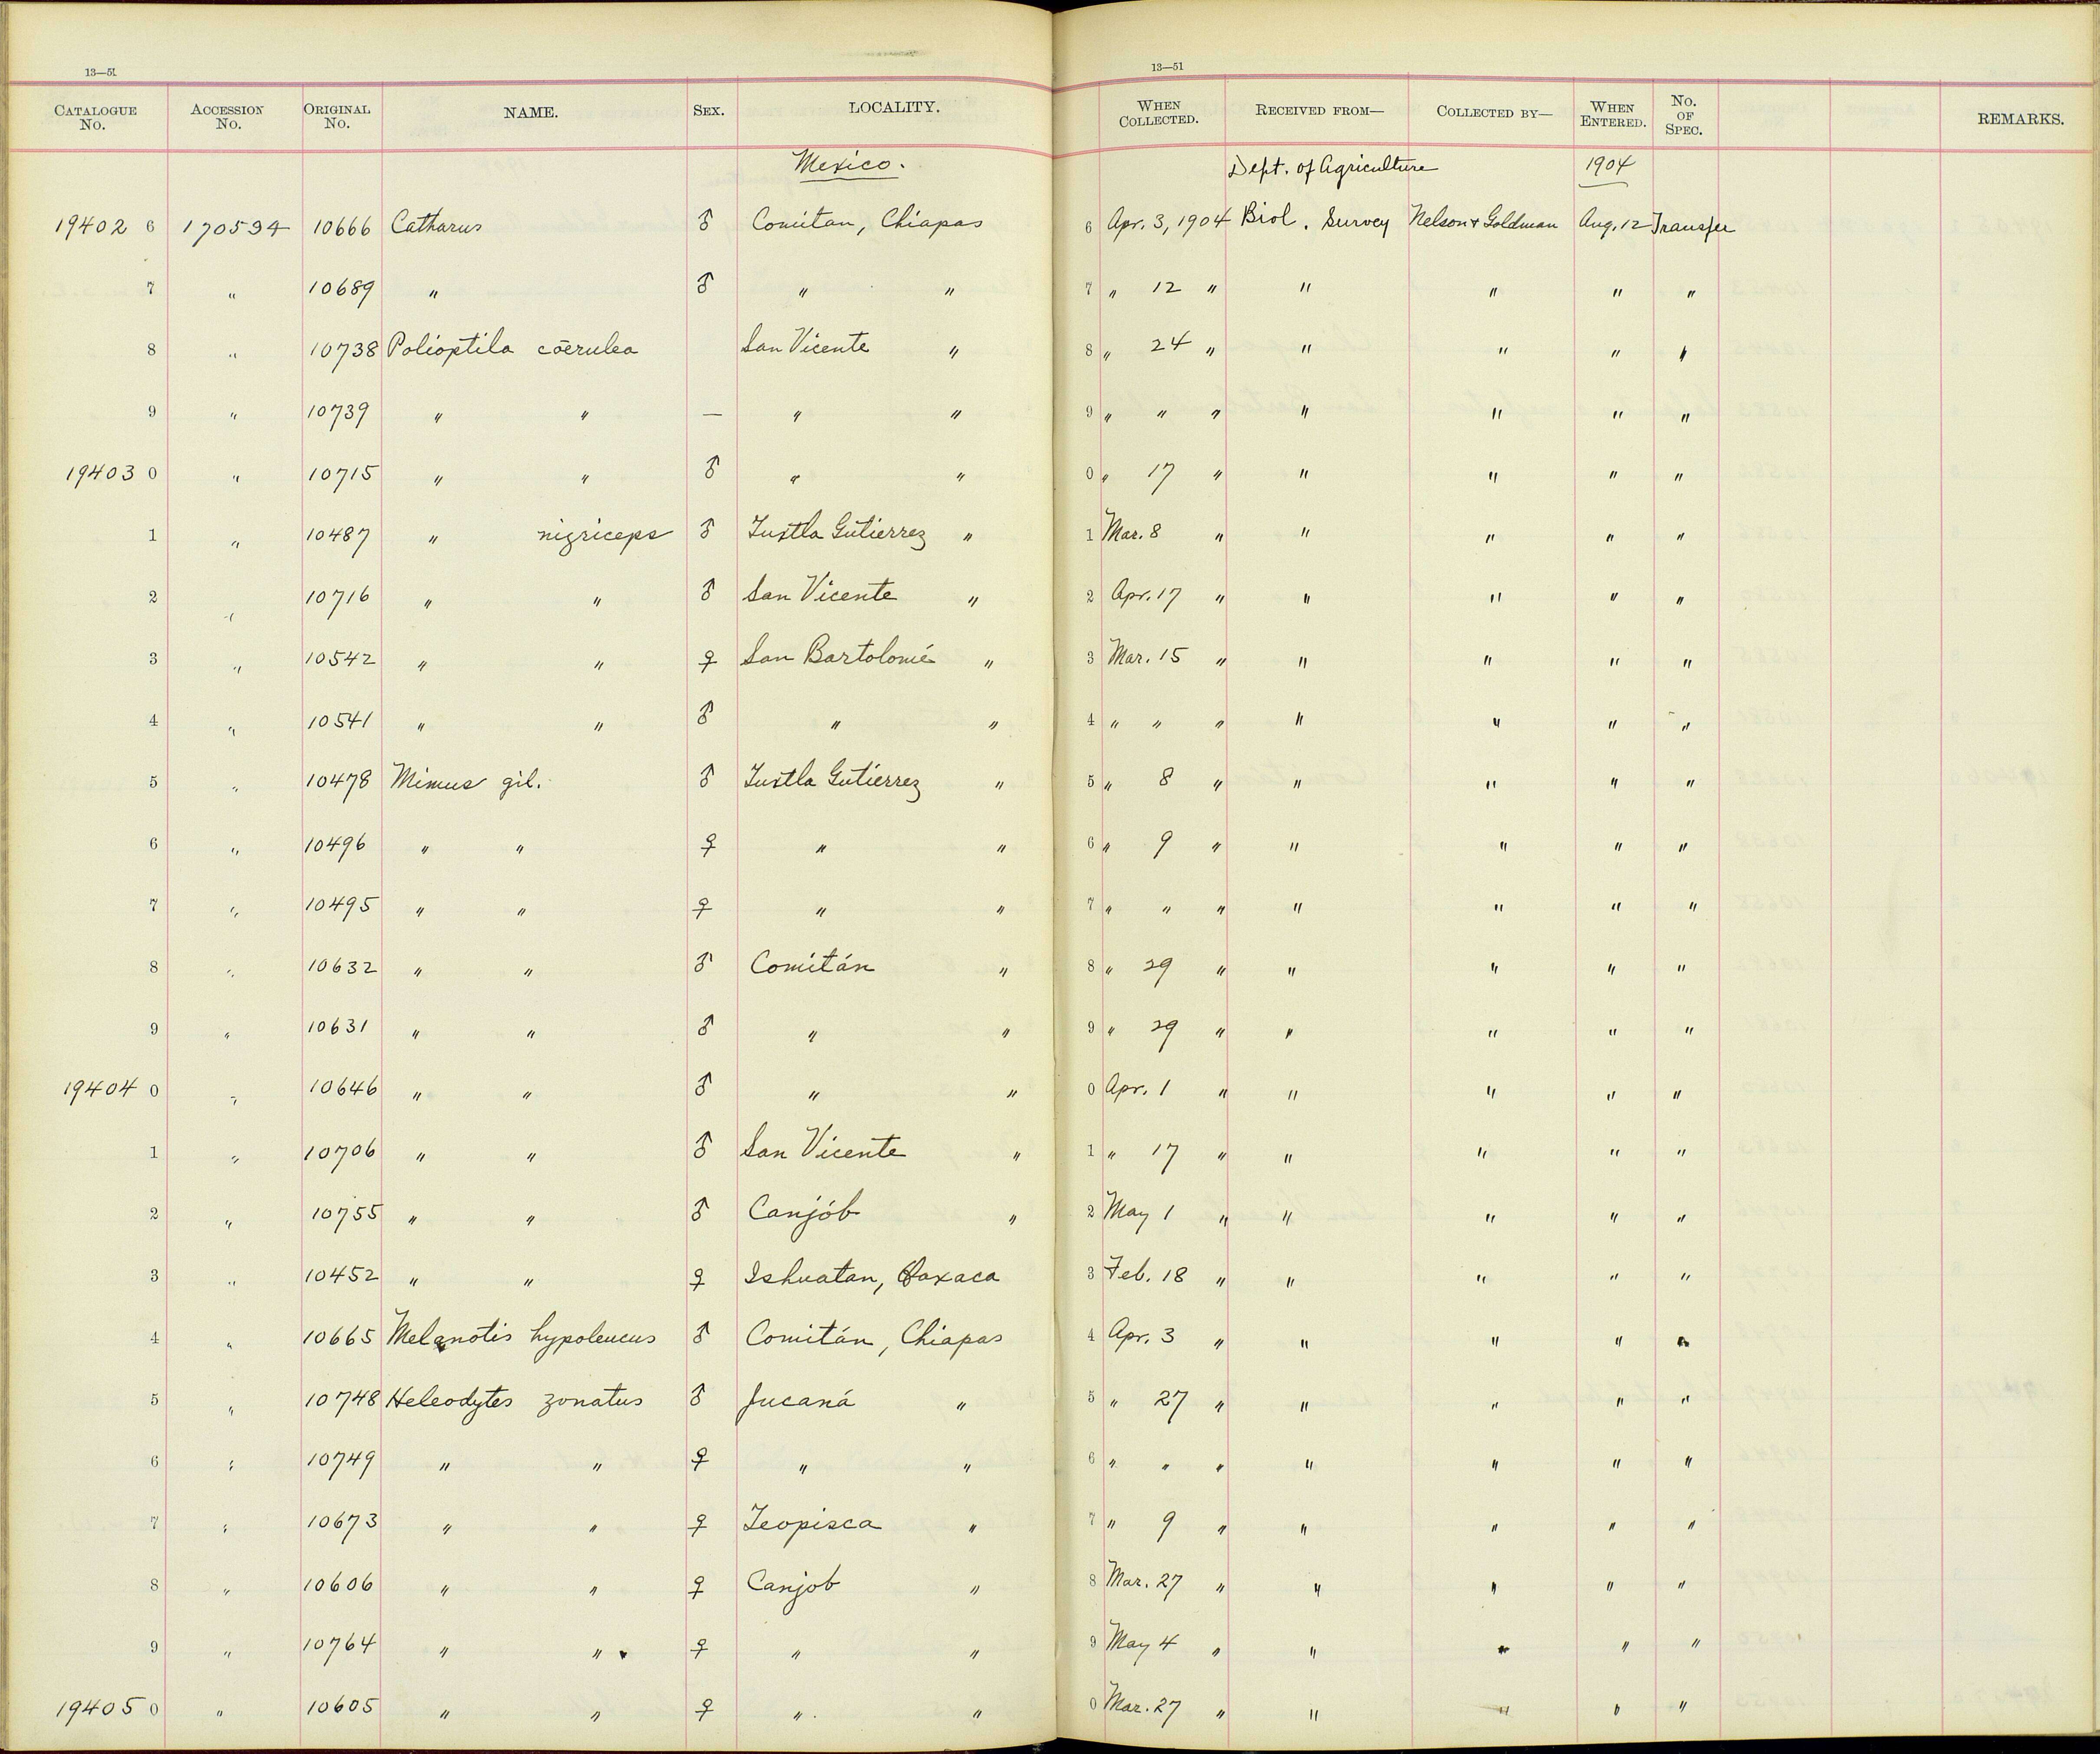 13—51
13—51
CATALOGUE No. ACCESSION No. ORIGINAL No. NAME. SEX. LOCALITY. WHEN COLLECTED. RECEIVED FROM— COLLECTED BY— WHEN ENTERED. No. OF SPEC. REMARKS.
Mexico. Dept. of Agriculture 1904
19402 6 170594 10666 Catharus ♂ Comitan, Chiapas 6 Apr. 3, 1904 Biol. Survey Nelson + Goldman Aug. 12 Transfer
7 " 10689 " ♂ " " 7 " 12 " " " " "
8 " 10738 Polioptila cœrulea San Vicente " 8 " 24 " " " " "
9 " 10739 " " — " " 9 " " " " " " "
19403 0 " 10715 " " ♂ " " 0 " 17 " " " " "
1 " 10487 " nigriceps ♂ Tuxtla Gutierrez " 1 Mar. 8 " " " " "
2 " 10716 " " ♂ San Vicente " 2 Apr. 17 " " " " "
3 " 10542 " " ♀ San Bartolomé " 3 Mar. 15 " " " " "
4 " 10541 " " ♂ " " 4 " " " " " " "
5 " 10478 Mimus gil. ♂ Tuxtla Gutierrez " 5 " 8 " " " " "
6 " 10496 " " ♀ " " 6 " 9 " " " " "
7 " 10495 " " ♀ " " 7 " " " " " " "
8 " 10632 " " ♂ Comitán " 8 " 29 " " " " "
9 " 10631 " " ♂ " " 9 " 29 " " " " "
19404 0 " 10646 " " ♂ " " 0 Apr. 1 " " " " "
1 " 10706 " " ♂ San Vicente " 1 " 17 " " " " "
2 " 10755 " " ♂ Canjób " 2 May 1 " " " " "
3 " 10452 " " ♀ Ishuatan, Oaxaca 3 Feb. 18 " " " " "
4 " 10665 Melanotis hypoleucus ♂ Comitán, Chiapas 4 Apr. 3 " " " " "
5 " 10748 Heleodytes zonatus ♂ Jucaná " 5 " 27 " " " " "
6 " 10749 " " ♀ " " 6 " " " " " " "
7 " 10673 " " ♀ Teopisca " 7 " 9 " " " " "
8 " 10606 " " ♀ Canjob " 8 Mar. 27 " " " " "
9 " 10764 " " ♀ " " 9 May 4 " " " " "
19405 0 " 10605 " " ♀ " " 0 Mar. 27 " " " " "